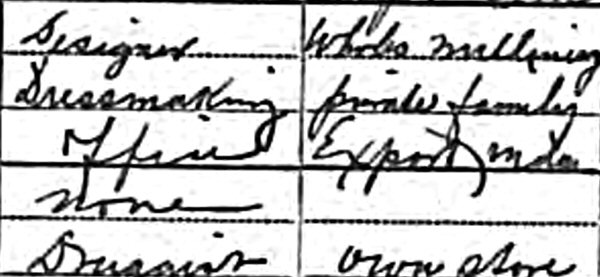 Designer Whols Millinery
Dressmaking private family
Office Export
None
Druggist own store